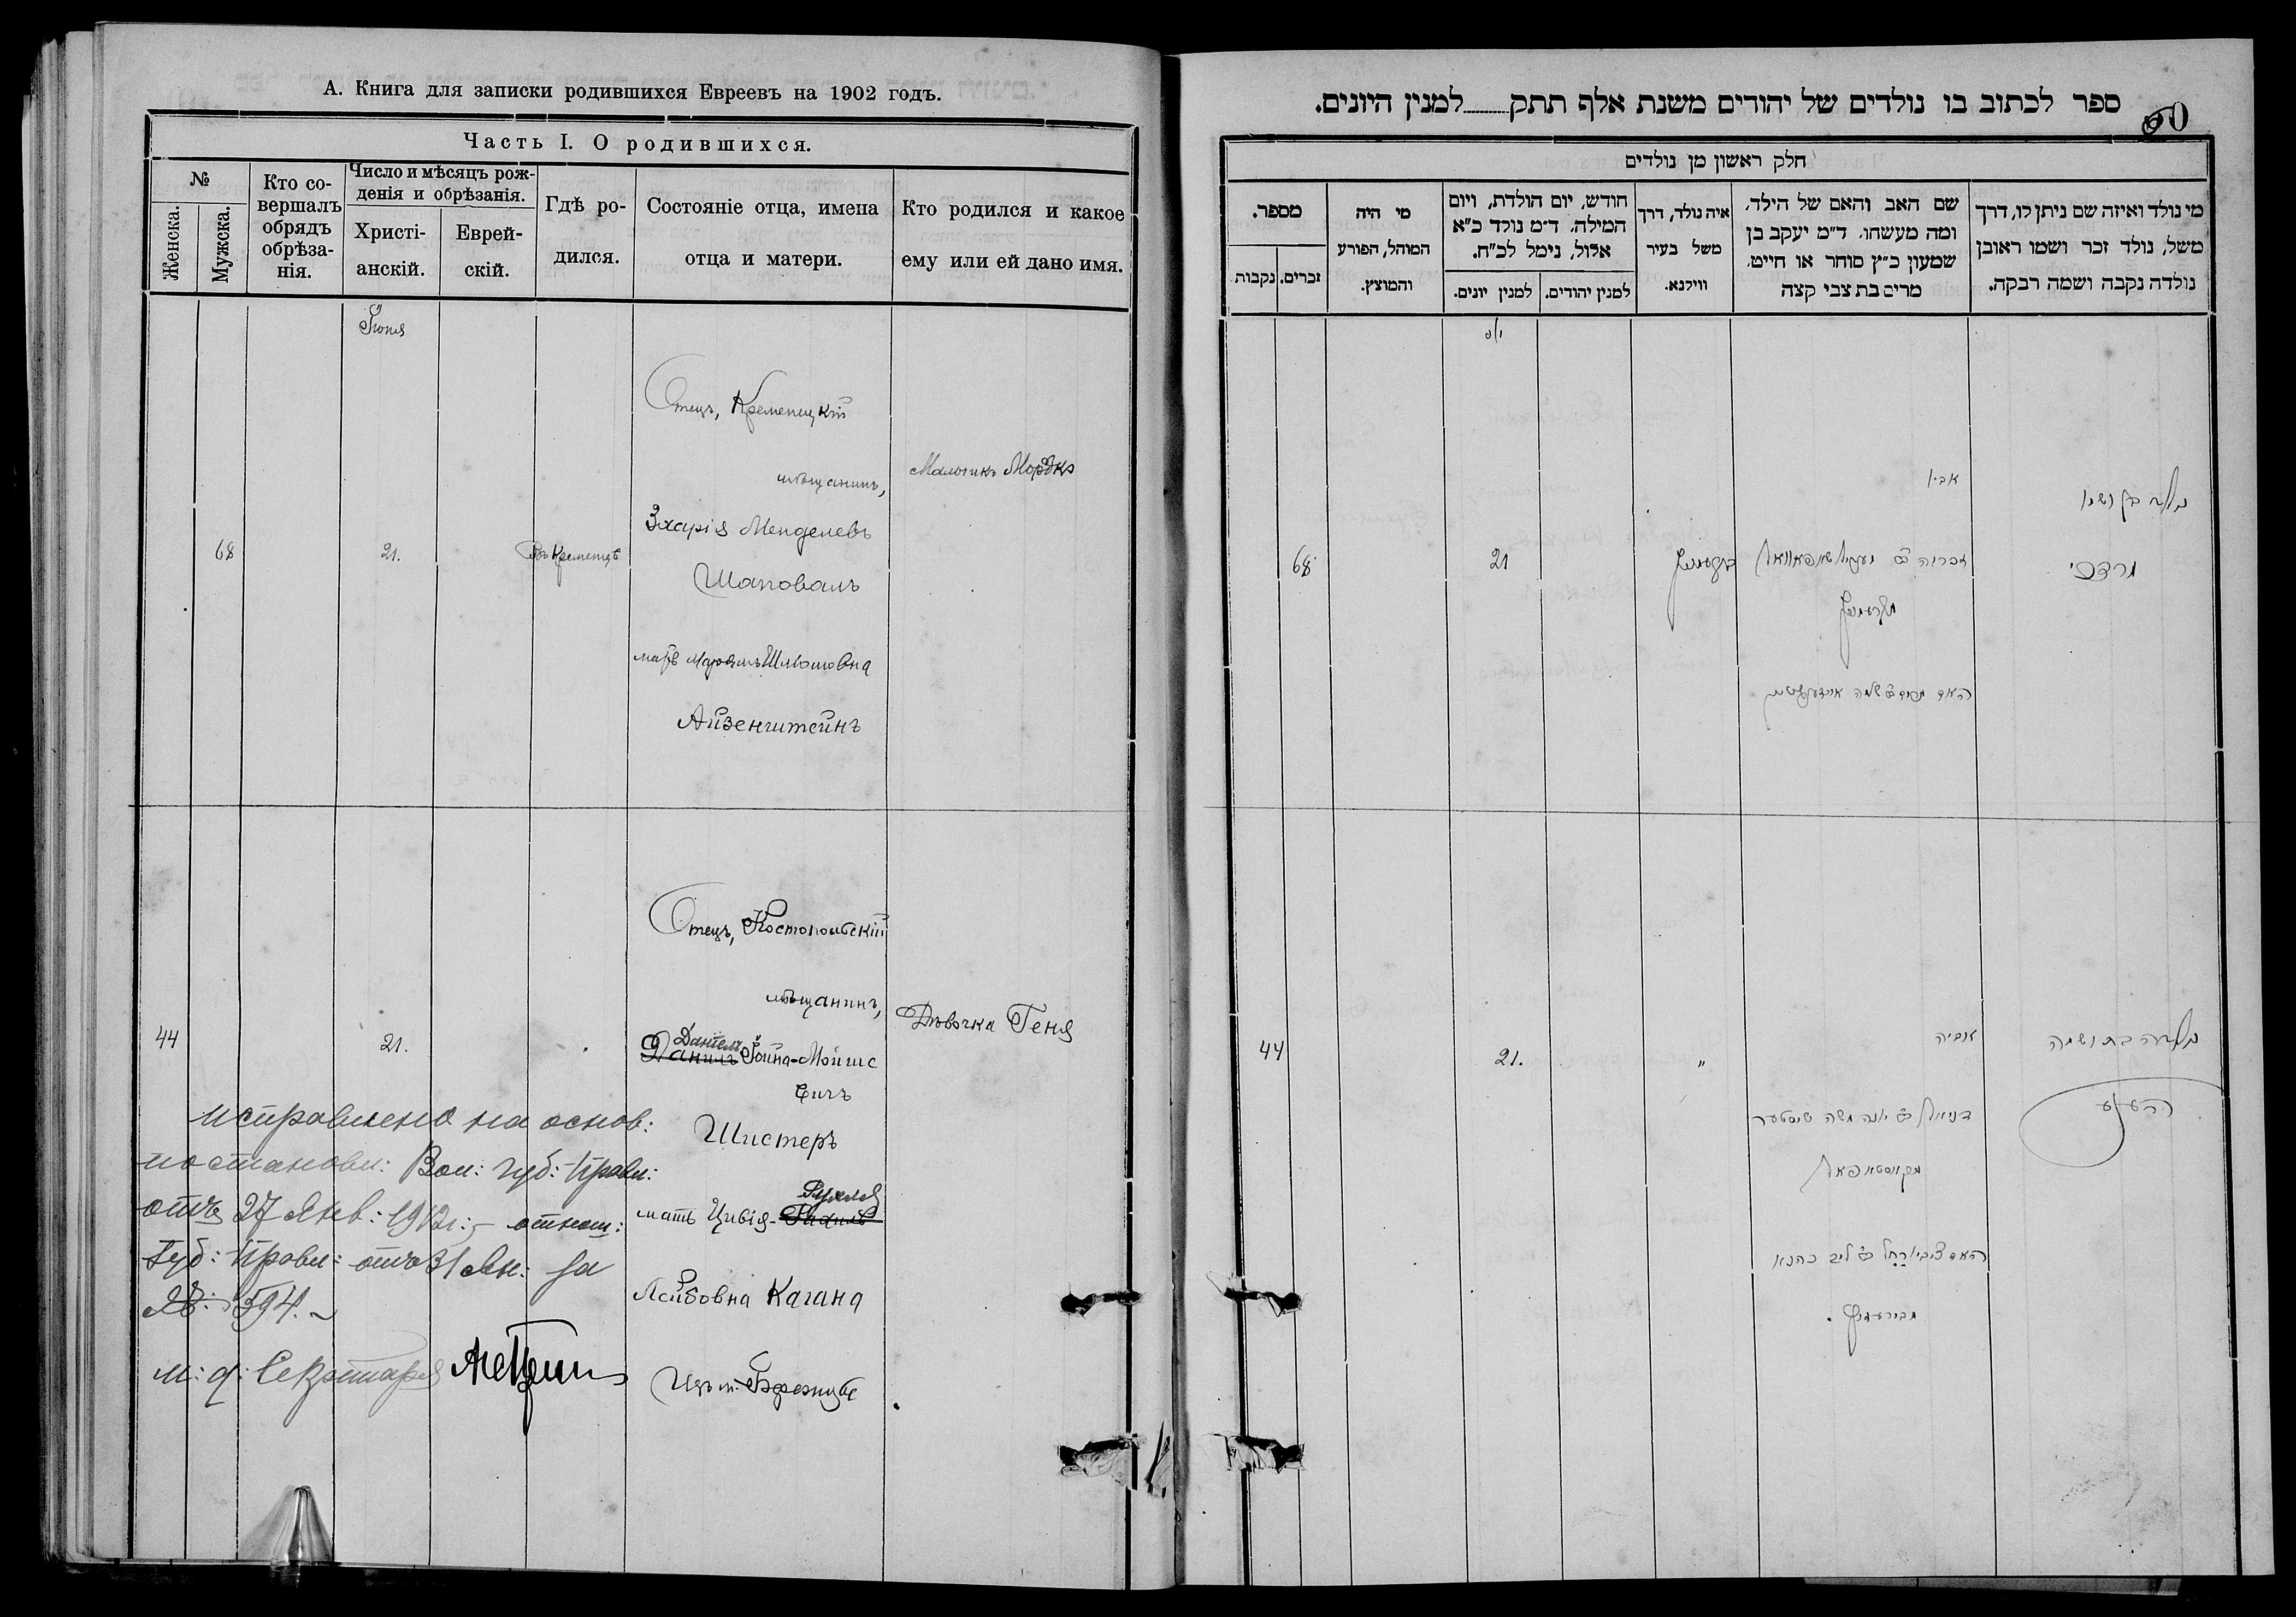 А. Книга для записки родившихся Евреевъ на 1902 годъ.
Часть I. О родившихся.
№
Женска.
Мужска.
Кто со-
вершалъ
обрядъ
обрѣза-
нія.
Число и мѣсяцъ рож-
денія и обрѣзанія.
Христі-
анскій.
Еврей-
скій.
Гдѣ ро-
дился.
Состояніе отца, имена
отца и матери.
Кто родился и какое
ему или ей дано имя.
Іюня
Отецъ, Кременецкій
мѣщанинъ,
Мальчикъ Мордко
Зхарія Менделевъ
68
21.
Въ Кременцѣ
Шаповалъ
мать Маріямъ Шліомовна
Айзенштейнъ
Отецъ, Костопольскій
мѣщанинъ,
Дѣвочка Геня
44
21.
Даніель
Данилъ Іойна-Мойше
вичъ
Шистеръ
мать Цивія-Рухля
Рахиль
Лейбовна Кагана
Изъ м. Бережцѣ
исправлено на основ:
постановл: Вол: губ: Правл:
отъ 27 Янв: 1912 г:, отнош:
Губ: Правл: отъ 31 Ян: за
№: 594.
и: д: Секретаря
ספר לכתוב בו נולדים של יהודים משנת אלף תתק למנין היונים.
60
חלק ראשון מן נולדים
מי נולד ואיזה שם ניתן לו, דרך
משל, נולד זכר ושמו ראובן
נולדה נקבה ושמה רבקה.
שם האב והאם של הילד,
ומה מעשהו. ד״מ יעקב בן
שמעון כ״ץ סוחר או חייט,
מרים בת צבי קצה
איה נולד, דרך
משל בעיר
ווילנא.
חודש, יום הולדת, ויום
המילה. ד״מ נולד כ״א
אלול, נימל לכ״ח.
למנין יהודים.
למנין יונים.
מי היה
המוהל, הפורע
והמוצץ.
מספר.
זכרים.
נקבות
אביו
נולד בן ושמו
מרדכי
זכריה ב״ר מענדיל שאפאוואל
קרעמניץ
21
68
מקרעמניץ
האם מרים ב״ר שלמה אייזענשטיין
נולדה בת ושמה
העניע
אביה
"
21.
44
דניאל ב״ר יונה משה שיסטער
מקאסטאפאל
האם צביי׳ רחל ב״ר ליב כהנא